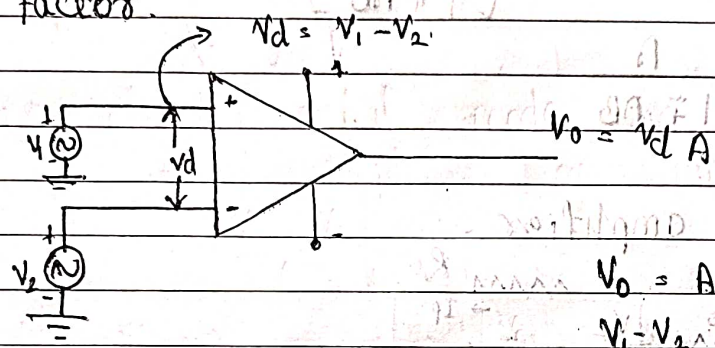 factor.
Vd = V₁ - V₂.
+
+
+
V₁
-
Vd
V₀ = Vd A
-
+
-
V₂
-
V₀ = A
V₁ - V₂